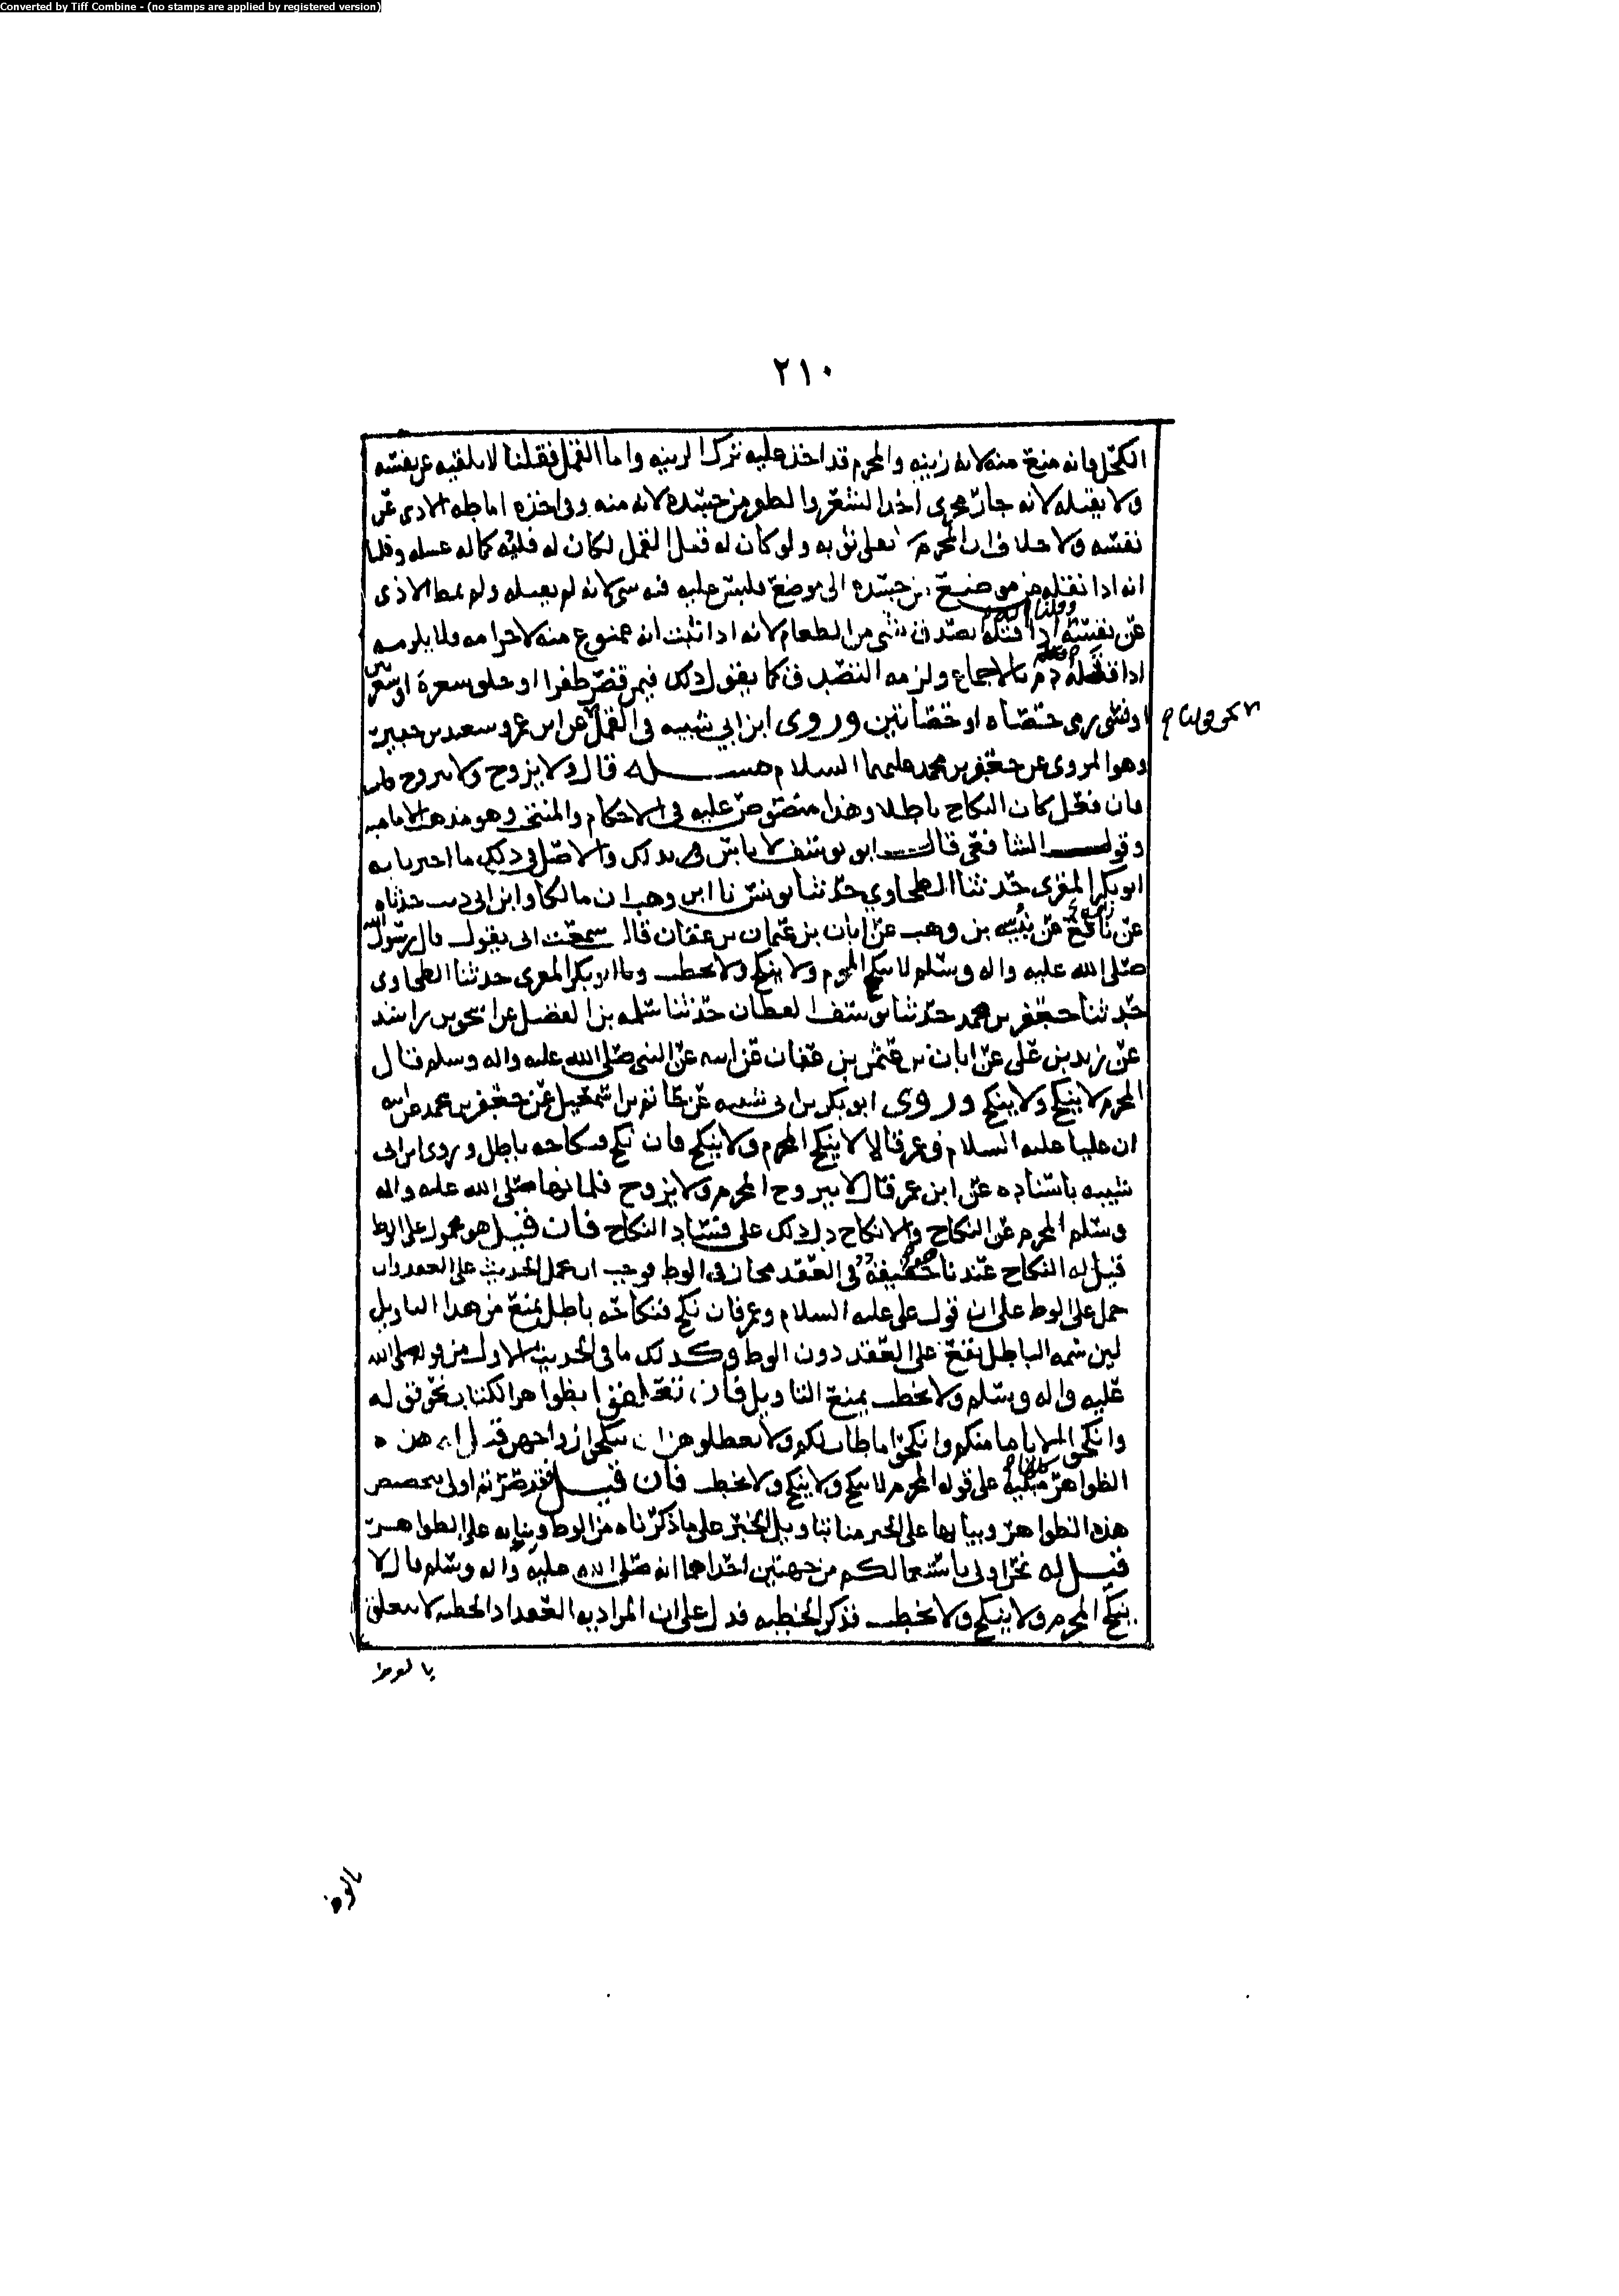 Converted by Tiff Combine - (no stamps are applied by registered version)
٢١٠
الكحل فانه منع منه لانه زينه والمحرم قد اخذ عليه ترك الزينه واما القمل فقلنا لا يلقيه عن نفسه
ولا يقتله لانه جار مجرى اخذ الشعر والظفر من جسده لانه منه وفي اخذه اماطه الاذى عن
نفسه ولا خلاف ان المحرم على ثوبه ولو كان له قتل القمل لكان له كما له غسله وقلنا
انه اذا نقله من موضع من جسده الى موضع فليس عليه فيه شي لانه لم يقتله ولم يمط الاذى
عن نفسه وقلنا اذا قتله تصدق بشي من الطعام لانه اذا ثبت انه ممنوع منه لاحرامه فلا يلزمه
اذا قتله دم بالاجماع ولزمه التصدق كما يقول ذلك فيمن قص ظفرا او حلق شعرة او شعرتين
او في رمى حصاه او حصاتين وروى ابن ابي شيبه في القمل عن ابن عمر وسعيد بن جبير
وهو المروى عن جعفر بن محمد عليهما السلام مسئله قال ولا يزوج ولا يتزوج
فان فعل كان النكاح باطلا وهذا منصوص عليه في الاحكام والمنتخب وهو مذهب الاماميه
وقول الشافعي قال ابو يوسف لا باس بذلك والاصل في ذلك ما اخبرنا به
ابو بكر المقرى حدثنا الطحاوي حدثنا يونس نا ابن وهب ان مالكا وابن ابي ذيب حدثاه
عن نافع عن نبيه بن وهب عن ابان بن عثمان بن عفان قال سمعت ابى يقول قال رسول الله
صلى الله عليه واله وسلم لا ينكح المحرم ولا ينكح ولا يخطب ونا ابو بكر المقرى حدثنا الطحاوى
حدثنا جعفر بن محمد حدثنا يوسف القطان حدثنا سلمه بن الفضل عن اسحق بن راشد
عن زيد بن على عن ابان بن عثمن بن عفان عن ابيه عن النبي صلى الله عليه واله وسلم قال
المحرم لا ينكح ولا ينكح وروى ابو بكر بن ابى شيبه عن حاتم بن اسمعيل عن جعفر بن محمد عن ابيه
ان عليا عليه السلام وعمر قالا لا ينكح المحرم ولا ينكح فان نكح فنكاحه باطل وروى ابن ابى
شيبه باسناده عن ابن عمر قال لا يتزوج المحرم ولا يزوج فلما نها صلى الله عليه واله
وسلم المحرم عن النكاح والانكاح دل ذلك على فساد النكاح فان قيل هو محمول على الوط
قيل له النكاح عندنا حقيقة في العقد مجاز في الوط فوجب ان يحمل الحديث على العقد وان
حمل على الوط على ان قول على عليه السلام وعمر فان نكح فنكاحه باطل يمنع من هذا التاويل
لين سمه الباطل تقع على العقد دون الوط وكذلك ما في الحديث الاول من قوله صلى الله
عليه واله وسلم ولا يخطب يمنع التاويل فان تعلقوا بظواهر الكتاب نحو قوله
وانكحوا الايامى منكم وانكحوا ما طاب لكم ولا تعضلوهن ان ينكحن ازواجهن قيل له هذه
الظواهر مبنية على قوله المحرم لا ينكح ولا ينكح ولا يخطب فان قيل فقد صرتم اولى بتخصيص
هذه الظواهر وبنايها على الخبر منا بتاويل الخبر على ما ذكرناه من الوط وبنايه على الظواهر
قيل له نحن اولى باستعمالكم من جهتين احداهما انه صلى الله عليه واله وسلم قال لا
ينكح المحرم ولا ينكح ولا يخطب فذكر الخطبه فدل على ان المراد به العقد اذ الخطبه لا تتعلق
بالوط
بالوط